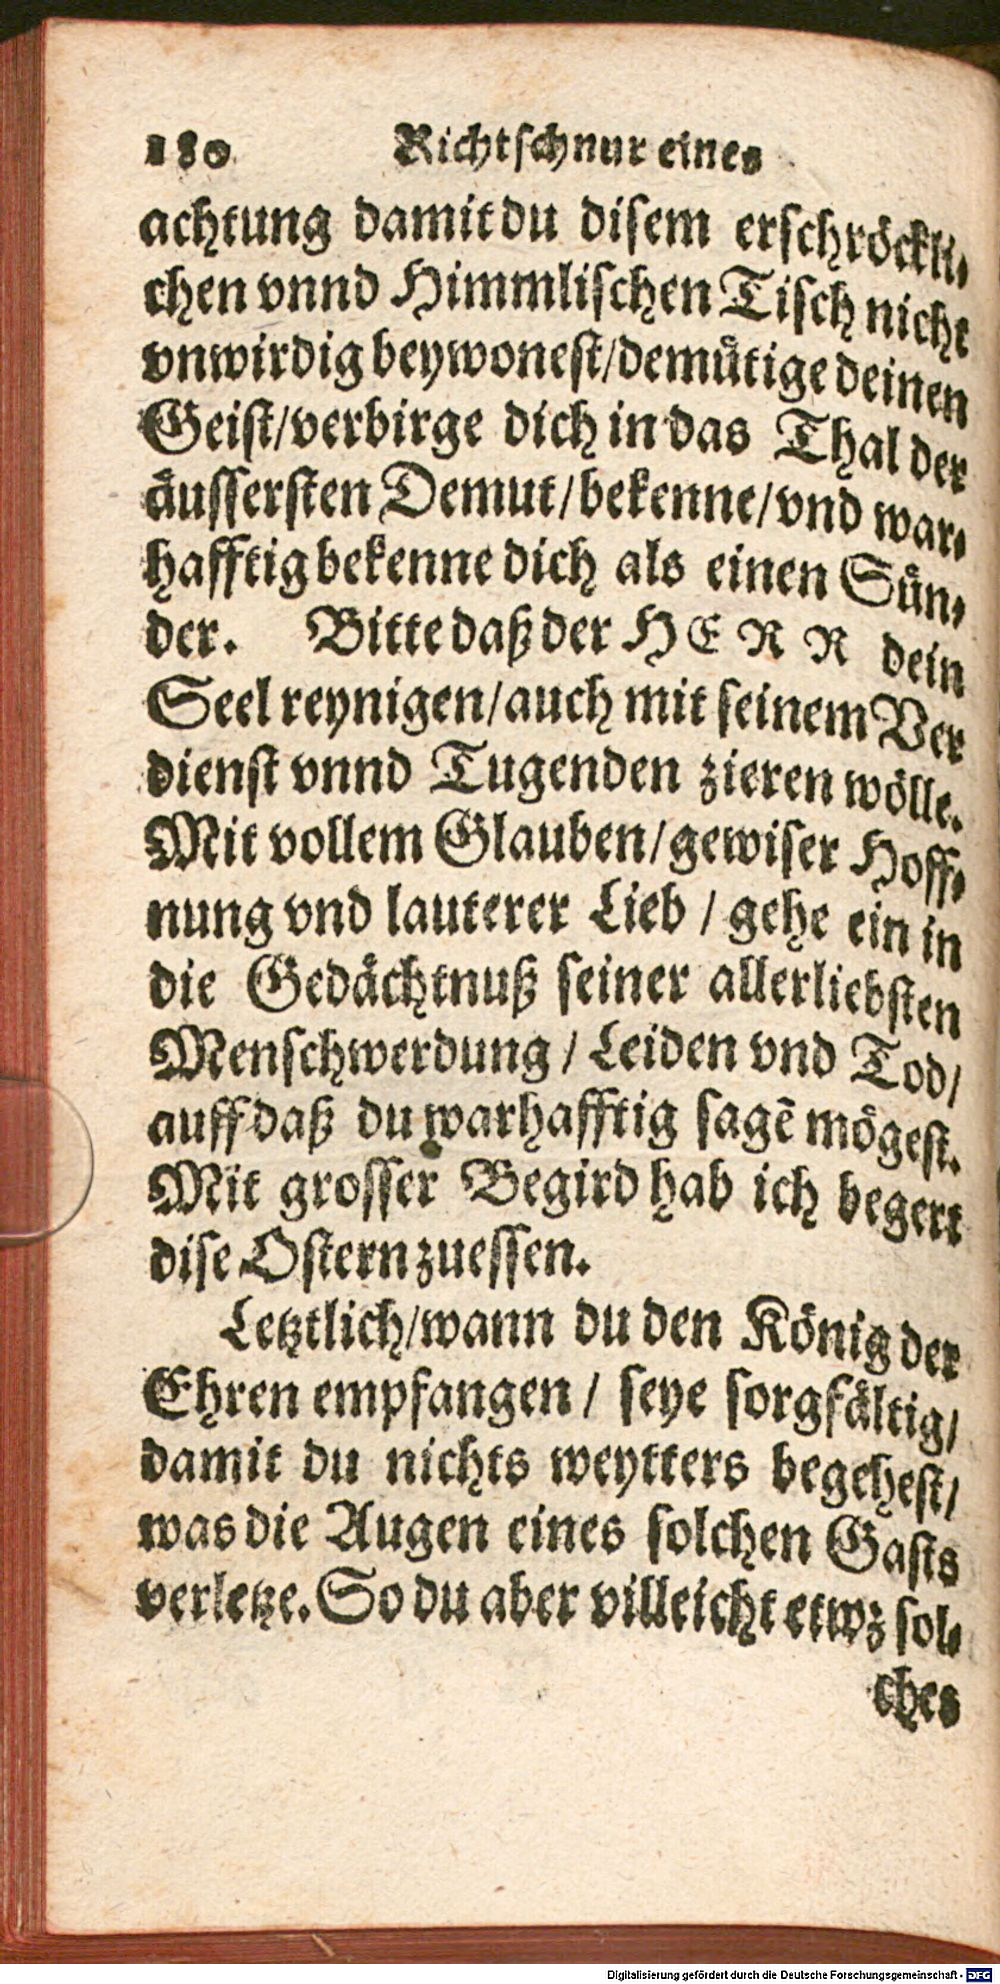 180 Richtschnur eines
achtung damit du disem erschröckli-
chen vnnd Himmlischen Tisch nicht
vnwirdig beywonest/demütige deinen
Geist/verbirge dich in das Thal der
äussersten Demut/bekenne/vnd war-
hafftig bekenne dich als einen Sün-
der. Bitte daß der HERR dein
Seel reynigen/auch mit seinem Ver
dienst vnnd Tugenden zieren wölle.
Mit vollem Glauben/gewiser Hoff-
nung vnd lauterer Lieb / gehe ein in
die Gedächtnuß seiner allerliebsten
Menschwerdung / Leiden vnd Tod/
auff daß du warhafftig sagē mögest.
Mit grosser Begird hab ich begert
dise Ostern zuessen.
Letztlich/wann du den König der
Ehren empfangen / seye sorgfältig/
damit du nichts weytters begehest/
was die Augen eines solchen Gasts
verletze. So du aber villeicht etwz sol-
ches
Digitalisierung gefördert durch die Deutsche Forschungsgemeinschaft - DFG